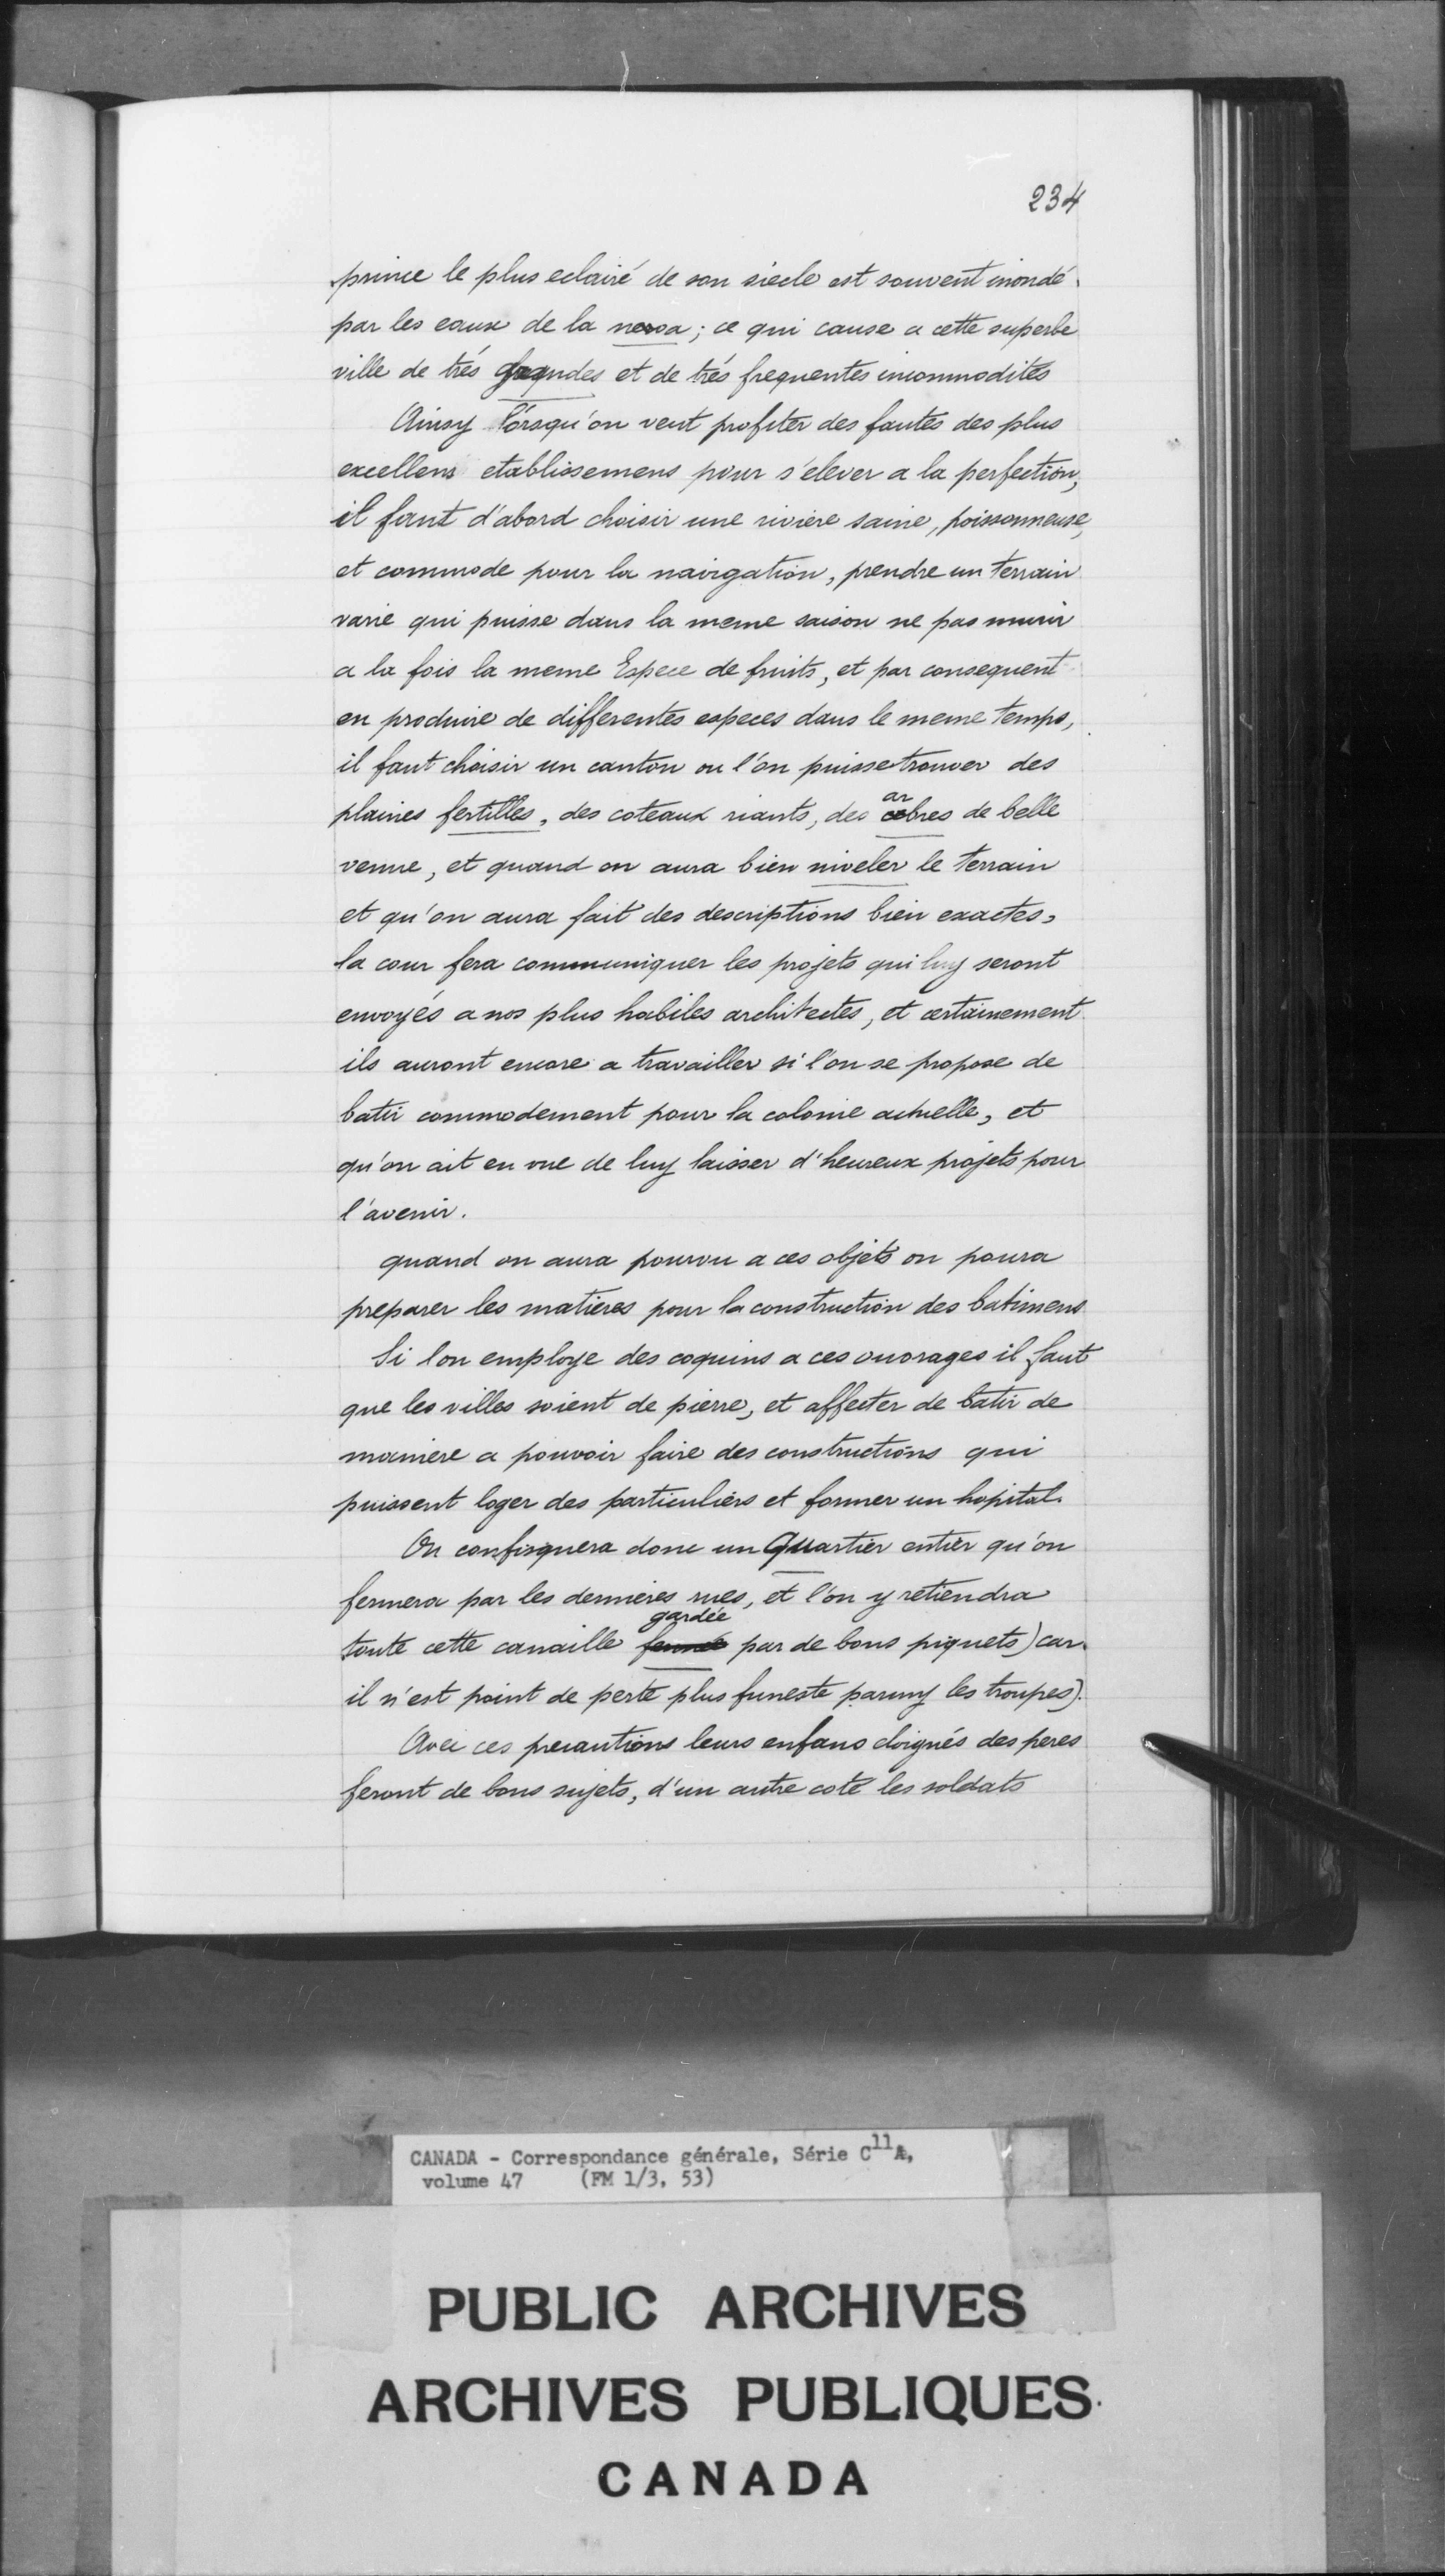 234
prince le plus eclairé de son siecle est souvent inondé
par les eaux de la newa; ce qui cause a cette superbe
ville de trés grandes et de trés frequentes incommodités
Ainsy lorsqu'on veut profiter des fautes des plus
excellens etablissemens pour s'elever a la perfection,
il faut d'abord choisir une riviere saine, poissonneuse,
et commode pour la navigation, prendre un terrain
varié qui puisse dans la meme saison ne pas murir
a la fois la meme Espece de fruits, et par consequent
en produire de differentes especes dans le meme temps,
il faut choisir un canton ou l'on puisse trouver des
plaines fertilles, des coteaux riants, des arbres de belle
venue, et quand on aura bien niveler le terrain
et qu'on aura fait des descriptions bien exactes,
la cour fera communiquer les projets qui luy seront
envoyés a nos plus habiles architectes, et certainement
ils auront encore a travailler si l'on se propose de
batir commodement pour la colonie actuelle, et
qu'on ait en vue de luy laisser d'heureux projets pour
l'avenir.
quand on aura pourvu a ces objets on poura
preparer les matieres pour la construction des batimens
Si lon employe des coquins a ces ouvrages il faut
que les villes soient de pierre, et affecter de batir de
maniere a pouvoir faire des constructions qui
puissent loger des particuliers et former un hopital.
On confisquera donc un Quartier entier qu'on
fermera par les dernieres rues, et l'on y retiendra
toute cette canaille gardée par de bons piquets) car
il n'est point de perte plus funeste parmy les troupes).
Avec ces precautions leurs enfans eloignés des peres
feront de bons sujets, d'un autre coté les soldats
CANADA - Correspondance générale, Série C11A,
volume 47 (FM 1/3, 53)
PUBLIC ARCHIVES
ARCHIVES PUBLIQUES
CANADA